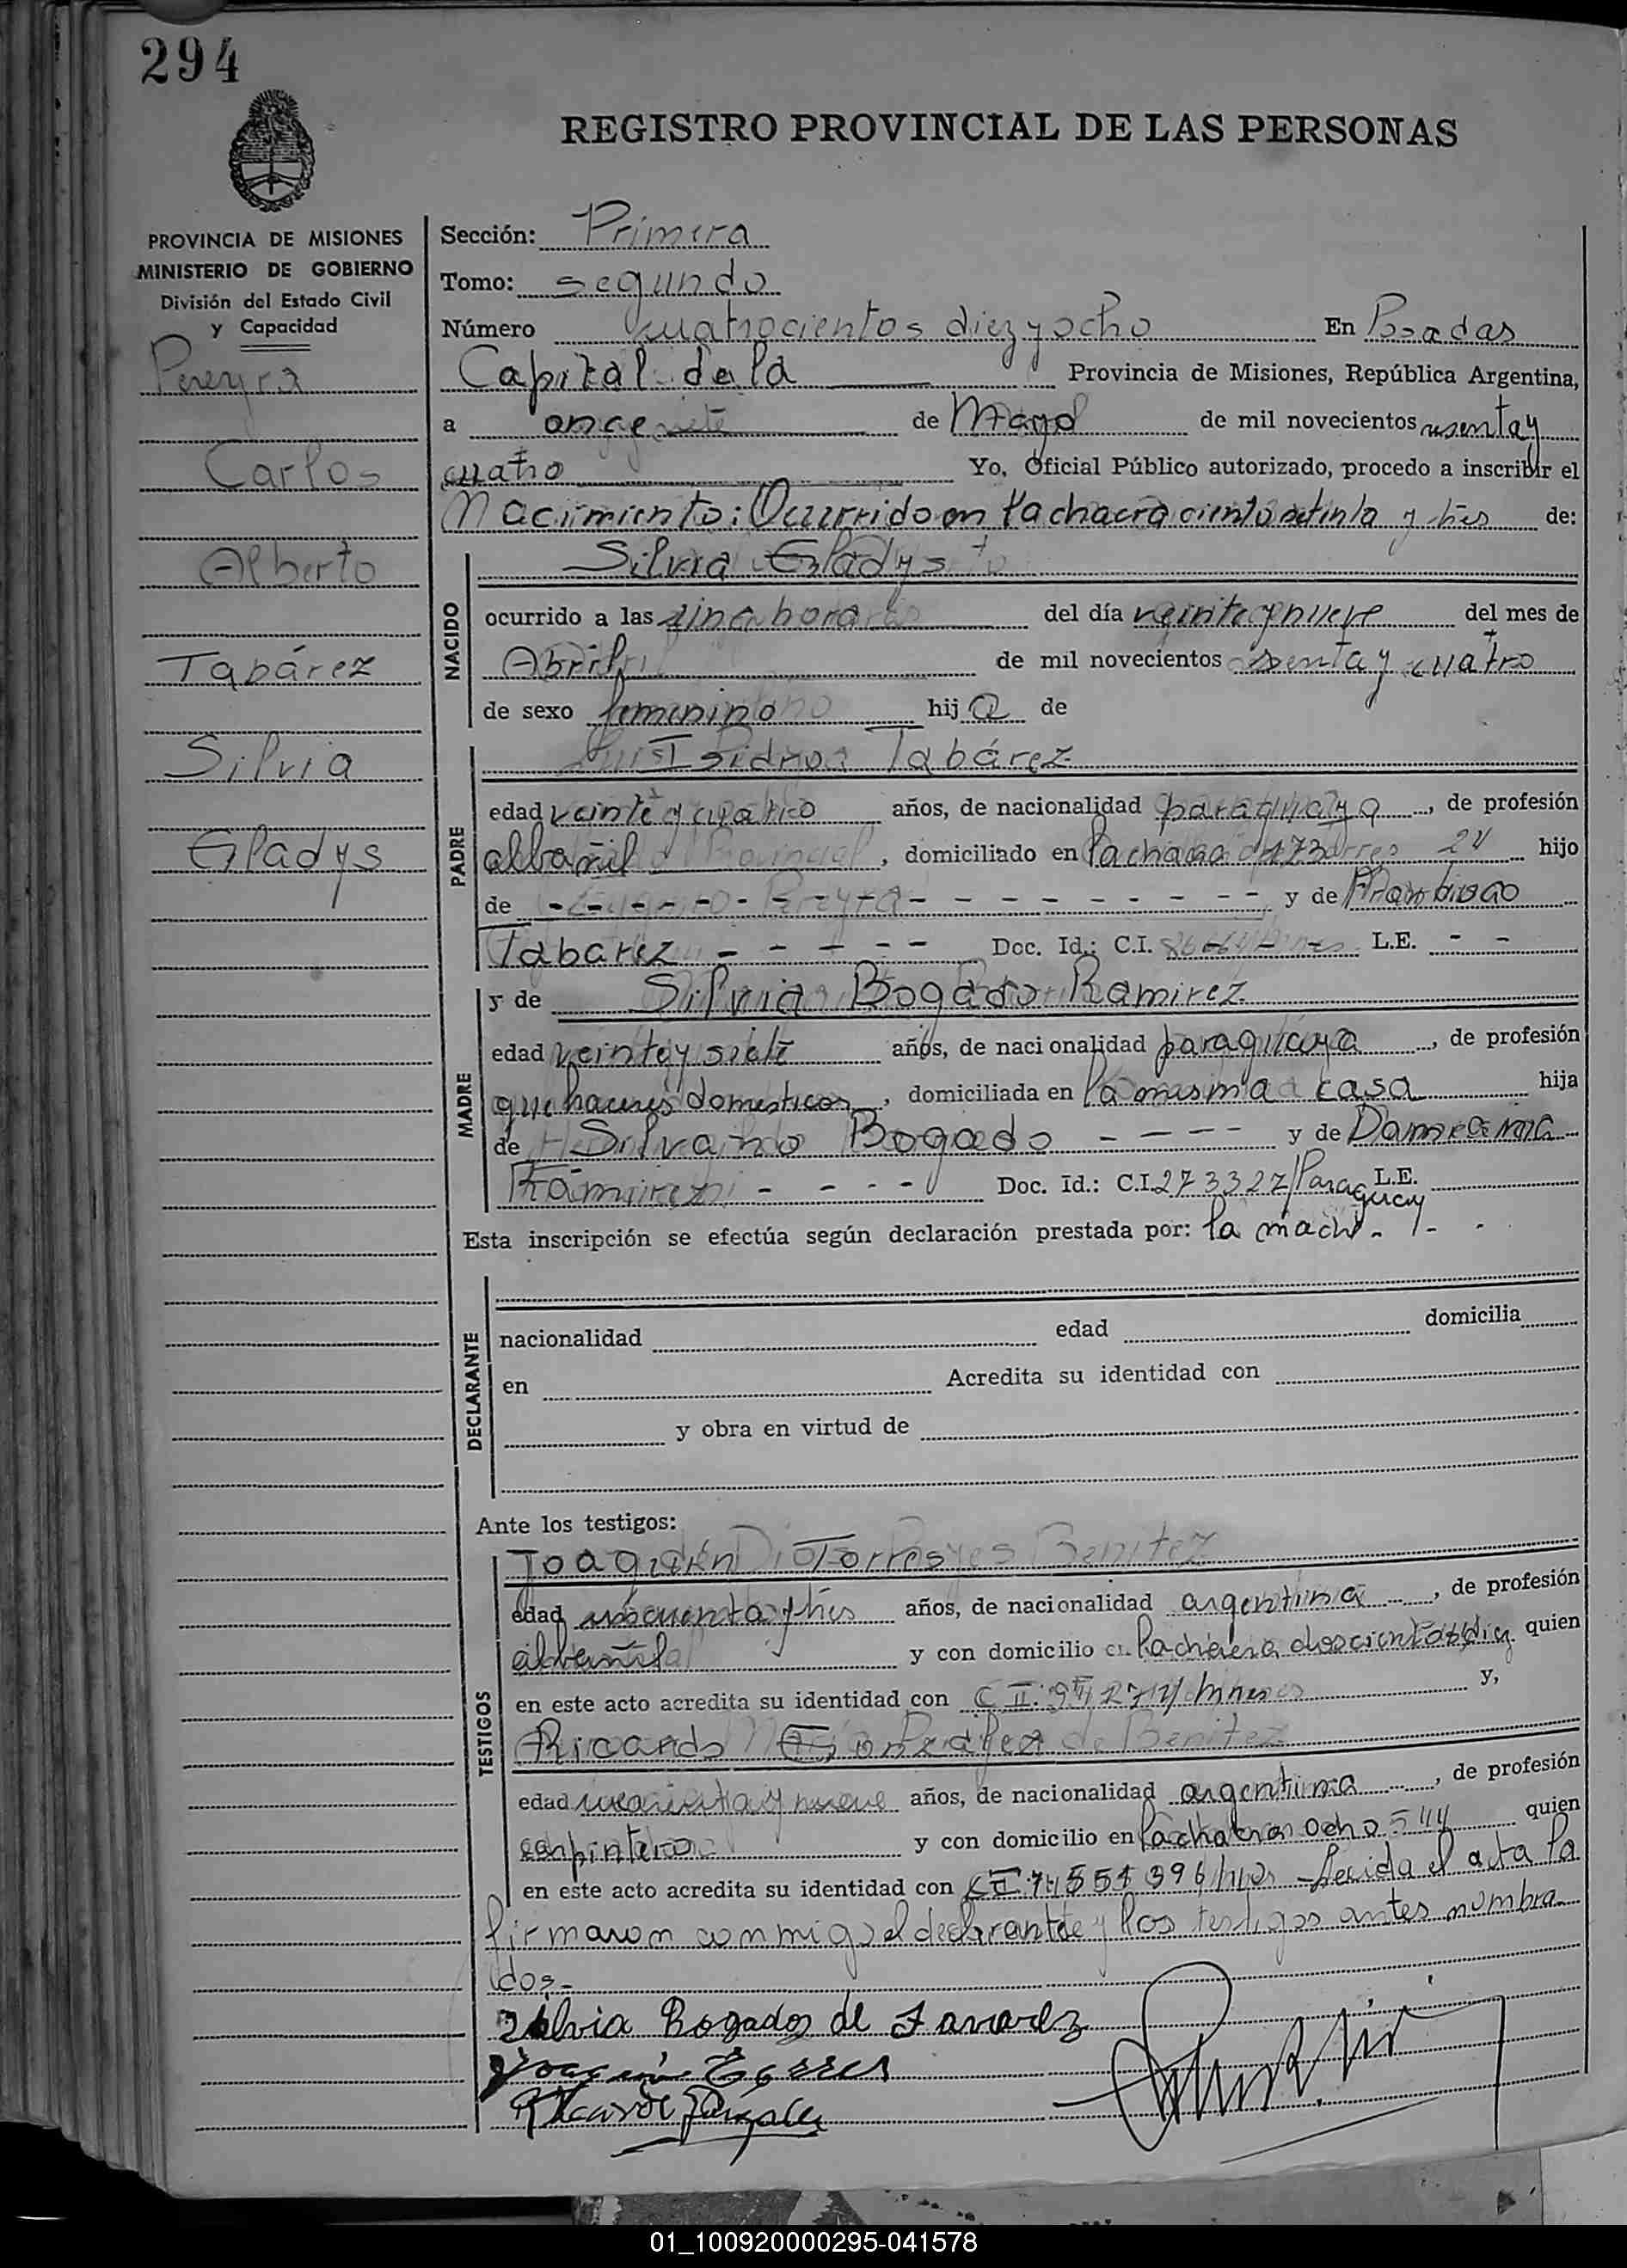 294
REGISTRO PROVINCIAL DE LAS PERSONAS
PROVINCIA DE MISIONES
MINISTERIO DE GOBIERNO
División del Estado Civil
y Capacidad
Pereyra
Carlos
Alberto
Tabárez
Silvia
Gladys
Sección: Primera
Tomo: segundo
Número cuatrocientos diez y ocho En Posadas
Capital de la Provincia de Misiones, República Argentina,
a once de Mayo de mil novecientos sesenta y
cuatro Yo, Oficial Público autorizado, procedo a inscribir el
Nacimiento: Ocurrido en la chacra ciento setenta y tres de:
NACIDO
Silvia Gladys
ocurrido a las hora del día veinte y nueve del mes de
Abril de mil novecientos sesenta y cuatro
de sexo femenino hija de
PADRE
Isidro Tabárez
edad veinte y cuatro años, de nacionalidad paraguaya, de profesión
albañil, domiciliado en la chacra 173 hijo
de - - - - - - y de
Tabarez - - - - - Doc. Id.: C.I. L.E. - -
MADRE
y de Silvia Bogado Ramirez
edad veinte y siete años, de nacionalidad paraguaya, de profesión
quehaceres domesticos, domiciliada en la misma casa hija
de Silvano Bogado - - - - y de Damiana
Ramirez - - - - Doc. Id.: C.I. 273327/Paraguay L.E.
Esta inscripción se efectúa según declaración prestada por: la madre. - -
DECLARANTE
nacionalidad edad domicilia
en Acredita su identidad con
y obra en virtud de
Ante los testigos:
TESTIGOS
Joaquín Torres
edad cincuenta y tres años, de nacionalidad argentina, de profesión
albañil y con domicilio en la chacra doscientos diez quien
en este acto acredita su identidad con y,
Ricardo Gonzalez
edad y nueve años, de nacionalidad argentina, de profesión
carpintero y con domicilio en la chacra ocho quien
en este acto acredita su identidad con Leida el acta la
firmaron conmigo el declarante y los testigos antes nombra
dos.-
Silvia Bogado de Tavarez
Joaquin Torres
Ricardo Gonzalez
01_100920000295-041578